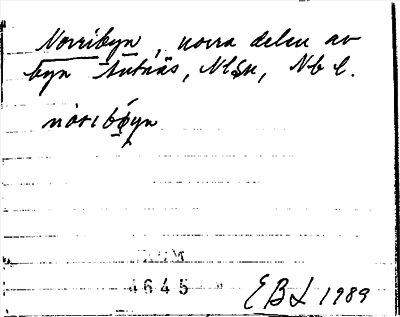 Norribyn, norra delen av
byn Antnäs, Nlsn, Nb l.
noribøyn
4645
EBL 1989